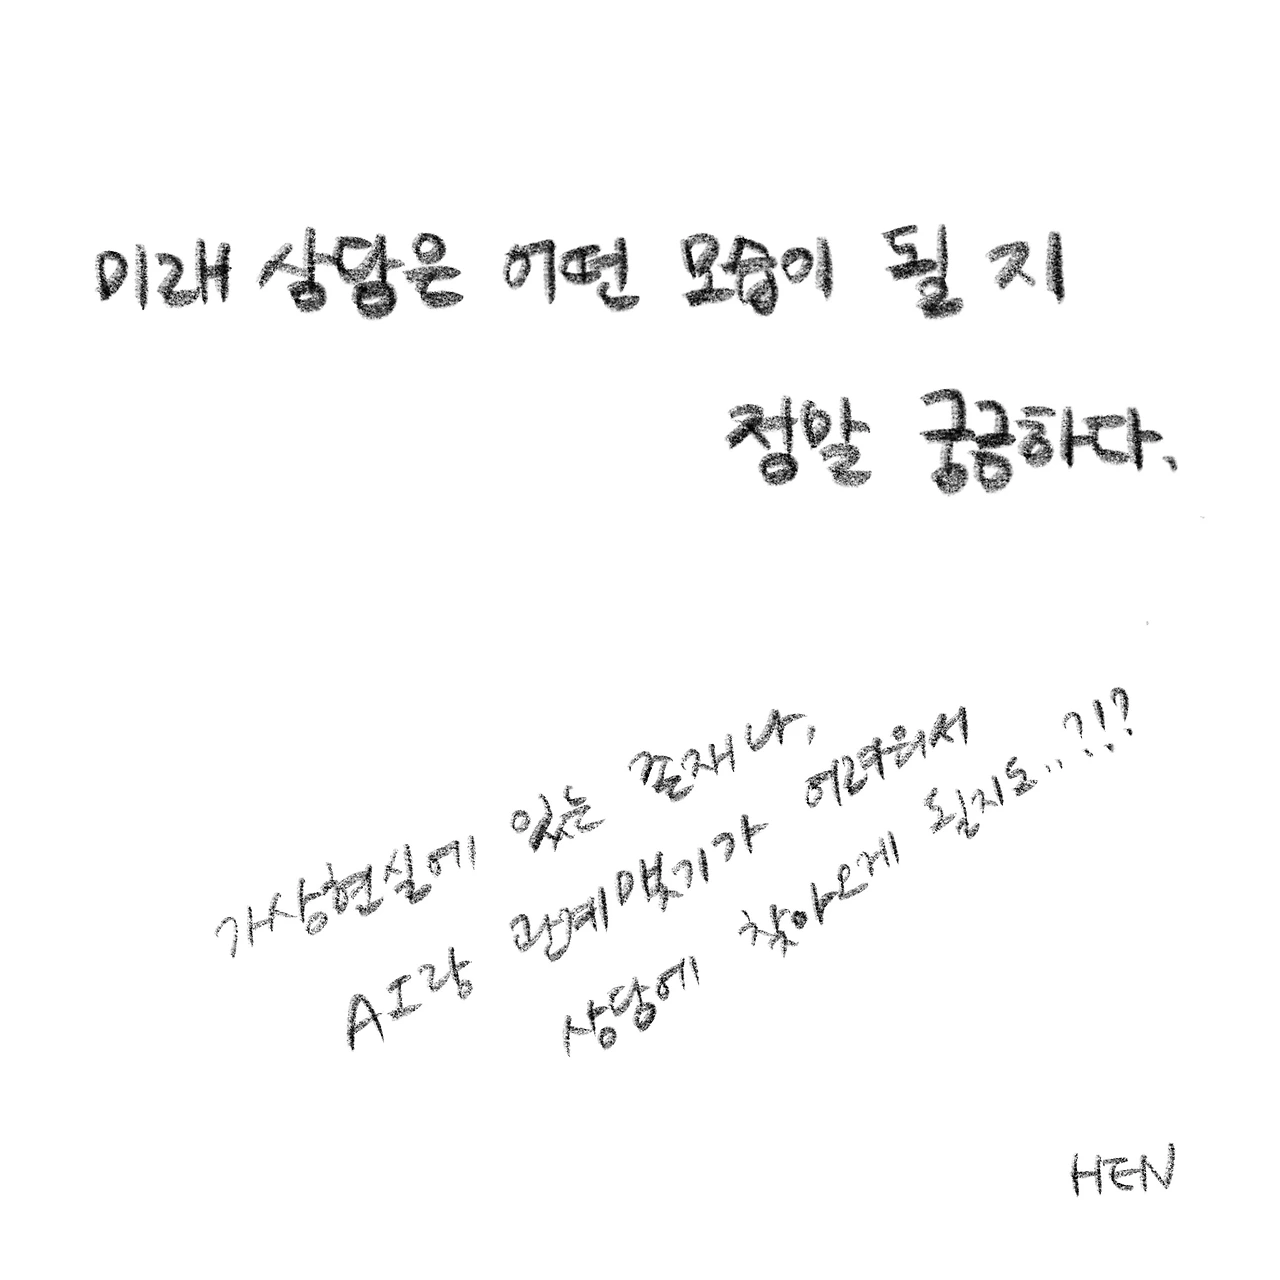 미래 상담은 어떤 모습이 될 지
정말 궁금하다.
가상현실에 있는 존재나,
AI랑 관계맺기가 어려워서
상담에 찾아오게 될지도..?!?
HEN